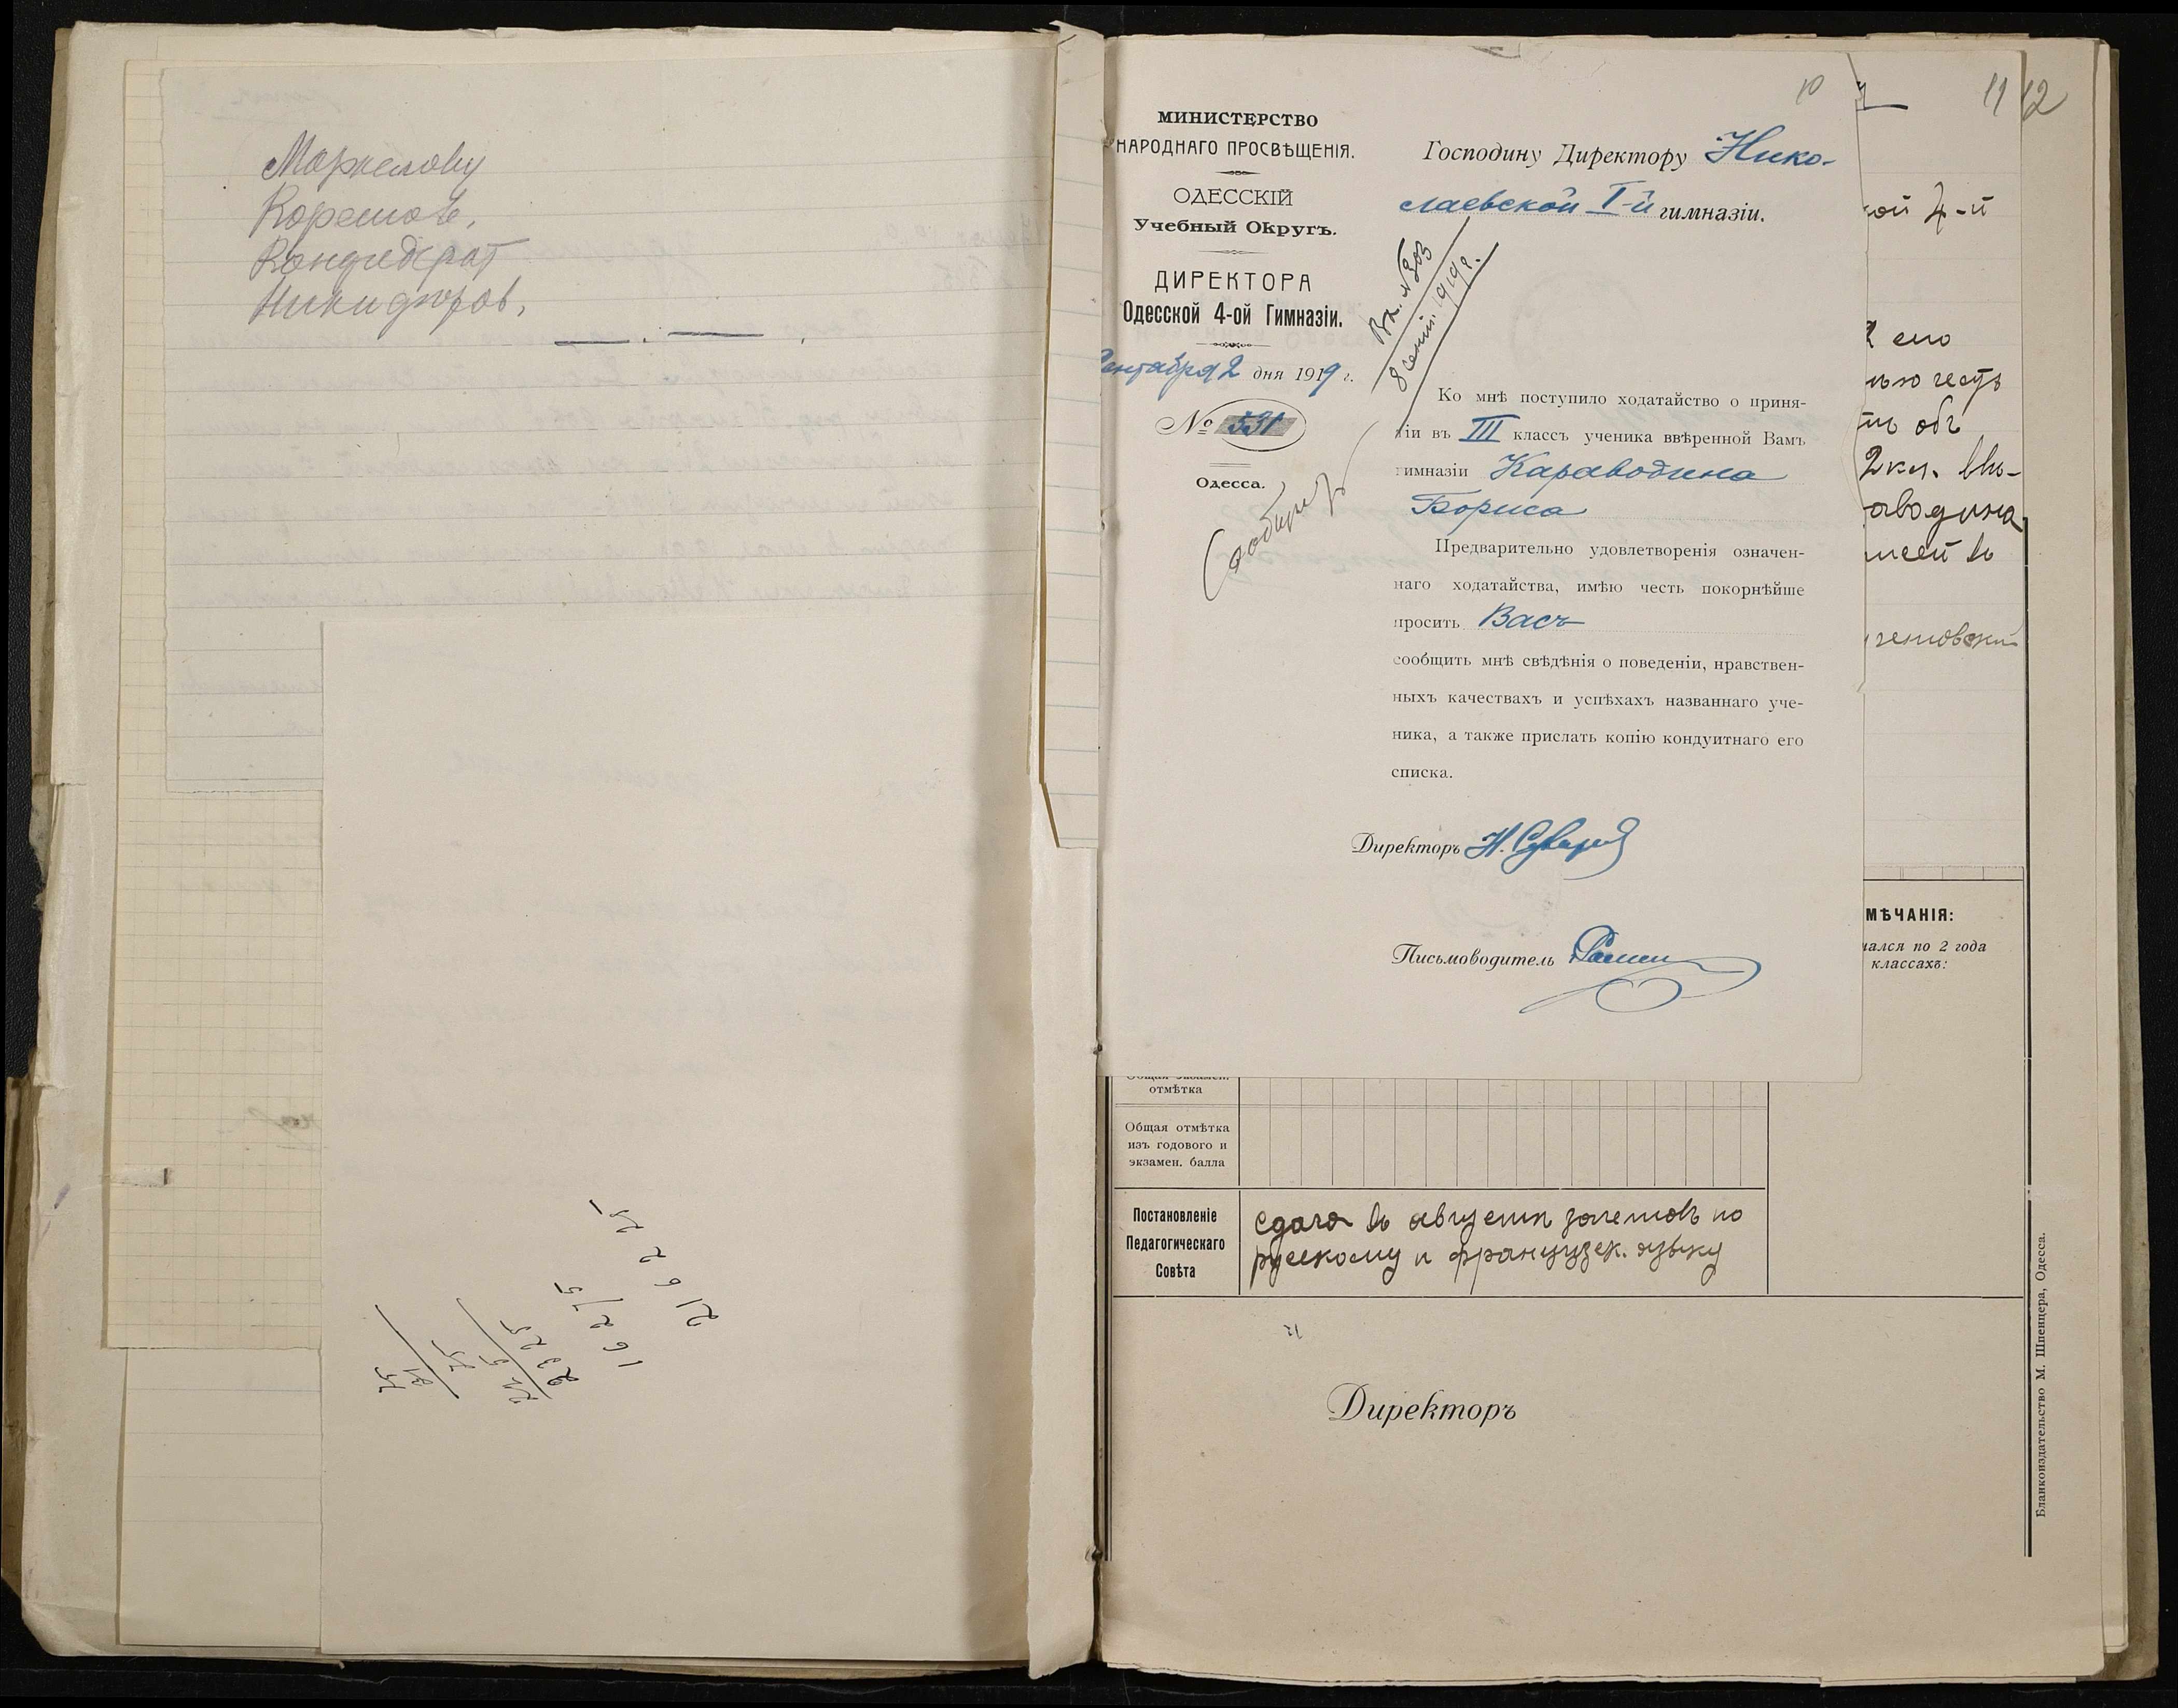 Маркелову
Корешов,
Кондидерат
Никифоров,
10
11
12
МИНИСТЕРСТВО
НАРОДНАГО ПРОСВѢЩЕНІЯ.
ОДЕССКІЙ
Учебный Округъ.
ДИРЕКТОРА
Одесской 4-ой Гимназіи.
Сентября 2 дня 1919 г.
№ 531
Одесса.
Господину Директору Нико-
лаевской I-й гимназіи.
Вх. №303
8 сент. 1919 г.
Ко мнѣ поступило ходатайство о приня-
тіи въ III классъ ученика ввѣренной Вамъ
гимназіи Караводина
Бориса
Предварительно удовлетворенія означен-
наго ходатайства, имѣю честь покорнѣйше
просить Васъ
сообщить мнѣ свѣдѣнія о поведеніи, нравствен-
ныхъ качествахъ и успѣхахъ названнаго уче-
ника, а также прислать копію кондуитнаго его
списка.
Директоръ
Письмоводитель
ой 4-й
ею честь
объ
2 кл. вве-
аводина
МѢЧАНІЯ:
ался по 2 года
классахъ:
отмѣтка
Общая отмѣтка
изъ годового и
экзамен. балла
Постановленіе
Педагогическаго
Совѣта
сдача въ августѣ зачетовъ по
русскому и французск. языку
Директоръ
Бланкоиздательство М. Шпенцера, Одесса.